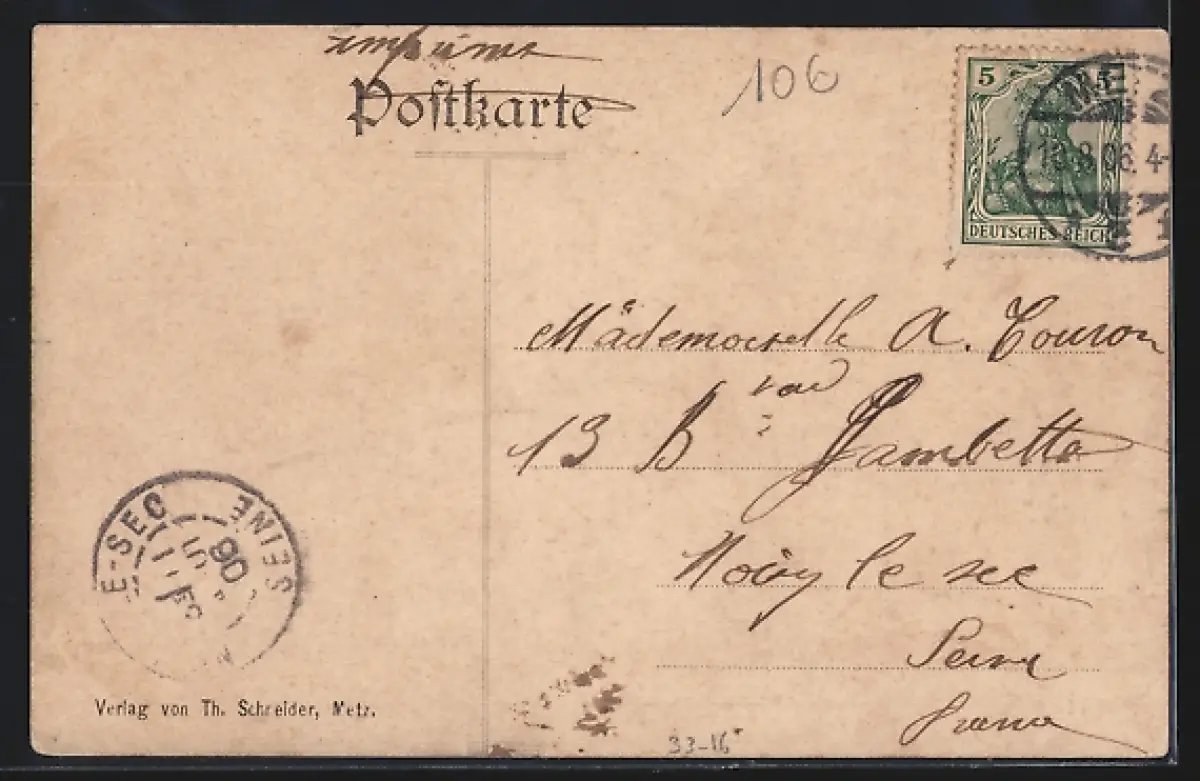 imprimé
Postkarte
106
5 5
DEUTSCHES REICH
ME
10.8.06. 4-
Mademoiselle A. Couron
13 Bvard Gambetta
Noisy le sec
Seine
France
E-SEC SEINE
06
Verlag von Th. Schreider, Metz.
33-16